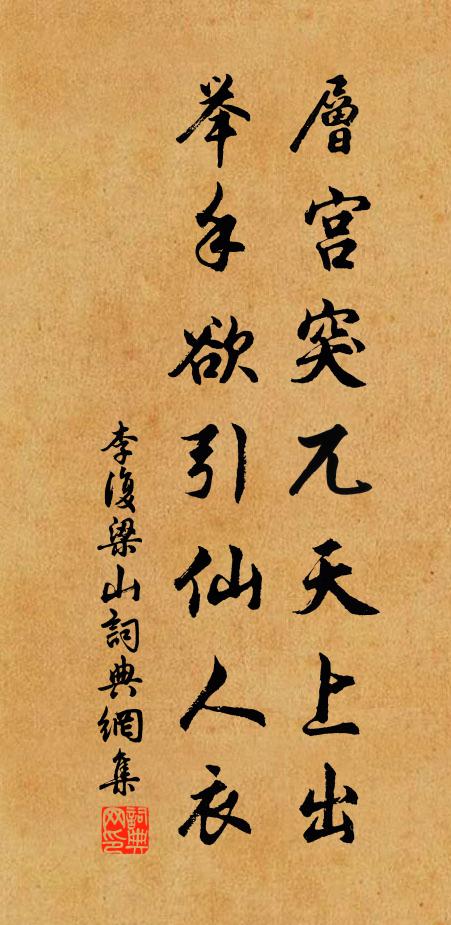 層宫突兀天上出
举手欲引仙人衣
李復梁山詞典網集
詞典網印